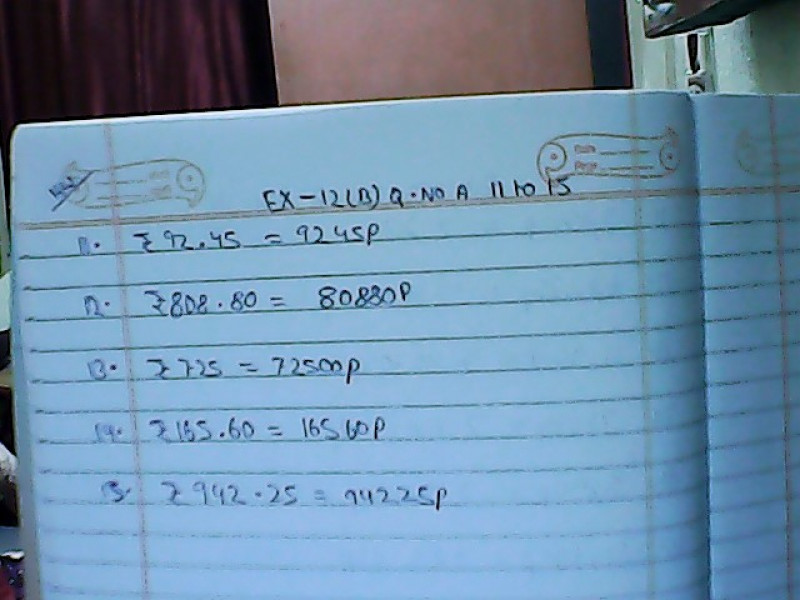 EX-12(B) Q.NO A 11 to 15
11. ₹92.45 = 9245P
12. ₹808.80 = 80880P
13. ₹725 = 72500P
14. ₹165.60 = 16560P
15. ₹942.25 = 94225P